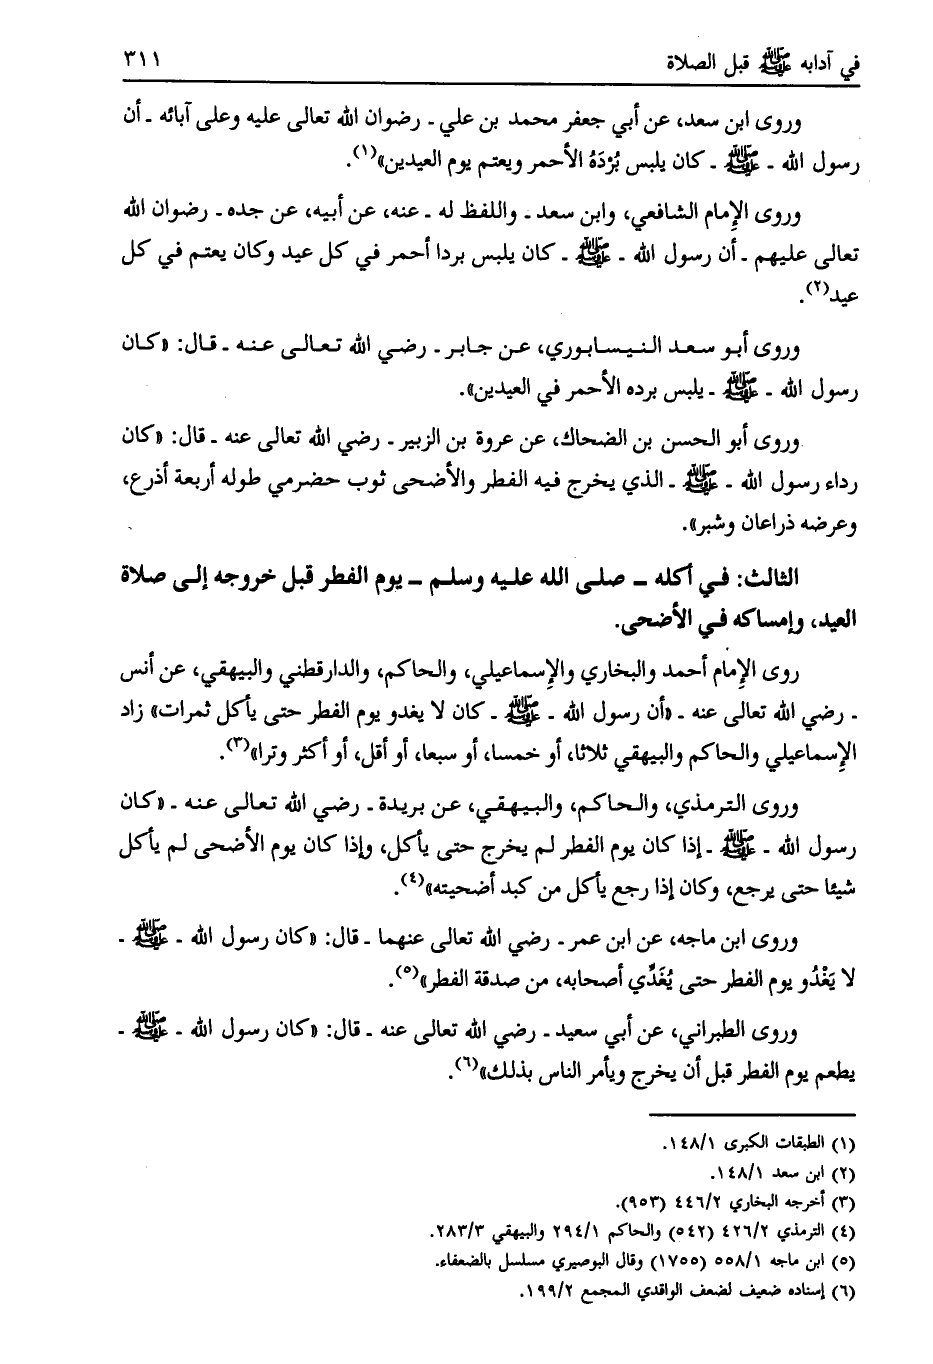 في آدابه ﷺ قبل الصلاة ٣١١
وروى ابن سعد، عن أبي جعفر محمد بن علي ـ رضوان الله تعالى عليه وعلى آبائه ـ أن
رسول الله ـ ﷺ ـ كان يلبس بُرْدَهُ الأحمر ويعتم يوم العيدين»(١).
وروى الإمام الشافعي، وابن سعد ـ واللفظ له ـ عنه، عن أبيه، عن جده ـ رضوان الله
تعالى عليهم ـ أن رسول الله ـ ﷺ ـ كان يلبس بردا أحمر في كل عيد وكان يعتم في كل
عيد(٢).
وروى أبو سعد النيسابوري، عن جابر ـ رضي الله تعالى عنه ـ قال: «كان
رسول الله ـ ﷺ ـ يلبس برده الأحمر في العيدين».
وروى أبو الحسن بن الضحاك، عن عروة بن الزبير ـ رضي الله تعالى عنه ـ قال: «كان
رداء رسول الله ـ ﷺ ـ الذي يخرج فيه الفطر والأضحى ثوب حضرمي طوله أربعة أذرع،
وعرضه ذراعان وشبر».
الثالث: في أكله ـ صلى الله عليه وسلم ـ يوم الفطر قبل خروجه إلى صلاة
العيد، وإمساكه في الأضحى.
روى الإمام أحمد والبخاري والإسماعيلي، والحاكم، والدارقطني والبيهقي، عن أنس
ـ رضي الله تعالى عنه ـ «أن رسول الله ـ ﷺ ـ كان لا يغدو يوم الفطر حتى يأكل ثمرات» زاد
الإسماعيلي والحاكم والبيهقي ثلاثا، أو خمسا، أو سبعا، أو أقل، أو أكثر وترا»(٣).
وروى الترمذي، والحاكم، والبيهقي، عن بريدة ـ رضي الله تعالى عنه ـ «كان
رسول الله ـ ﷺ ـ إذا كان يوم الفطر لم يخرج حتى يأكل، وإذا كان يوم الأضحى لم يأكل
شيئا حتى يرجع، وكان إذا رجع يأكل من كبد أضحيته»(٤).
وروى ابن ماجه، عن ابن عمر ـ رضي الله تعالى عنهما ـ قال: «كان رسول الله ـ ﷺ ـ
لا يَغْدُو يوم الفطر حتى يُغَدِّي أصحابه، من صدقة الفطر»(٥).
وروى الطبراني، عن أبي سعيد ـ رضي الله تعالى عنه ـ قال: «كان رسول الله ـ ﷺ ـ
يطعم يوم الفطر قبل أن يخرج ويأمر الناس بذلك»(٦).
(١) الطبقات الكبرى ١٤٨/١.
(٢) ابن سعد ١٤٨/١.
(٣) أخرجه البخاري ٤٤٦/٢ (٩٥٣).
(٤) الترمذي ٤٢٦/٢ (٥٤٢) والحاكم ٢٩٤/١ والبيهقي ٢٨٣/٣.
(٥) ابن ماجه ٥٥٨/١ (١٧٥٥) وقال البوصيري مسلسل بالضعفاء.
(٦) إسناده ضعيف لضعف الواقدي المجمع ١٩٩/٢.